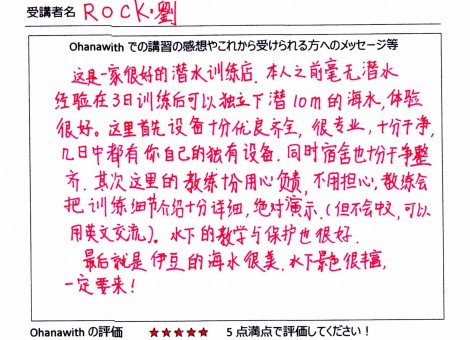 受講者名 ROCK·劉
Ohanawith での講習の感想やこれから受けられる方へのメッセージ等
这是一家很好的潜水训练店. 本人之前毫无潜水
经验在3日训练后可以独立下潜10m的海水,体验
很好。这里首先设备十分优良齐全, 很专业, 十分干净,
几日中都有你自己的独有设备. 同时宿舍也十分干净整
齐. 其次这里的教练十分用心负责, 不用担心, 教练会
把训练细节介绍十分详细, 绝对演示. (但不会中文, 可以
用英文交流)。水下的教学与保护也很好.
最后就是伊豆的海水很美. 水下景色很丰富,
一定要来!
Ohanawith の評価 ★★★★★ 5 点満点で評価してください!